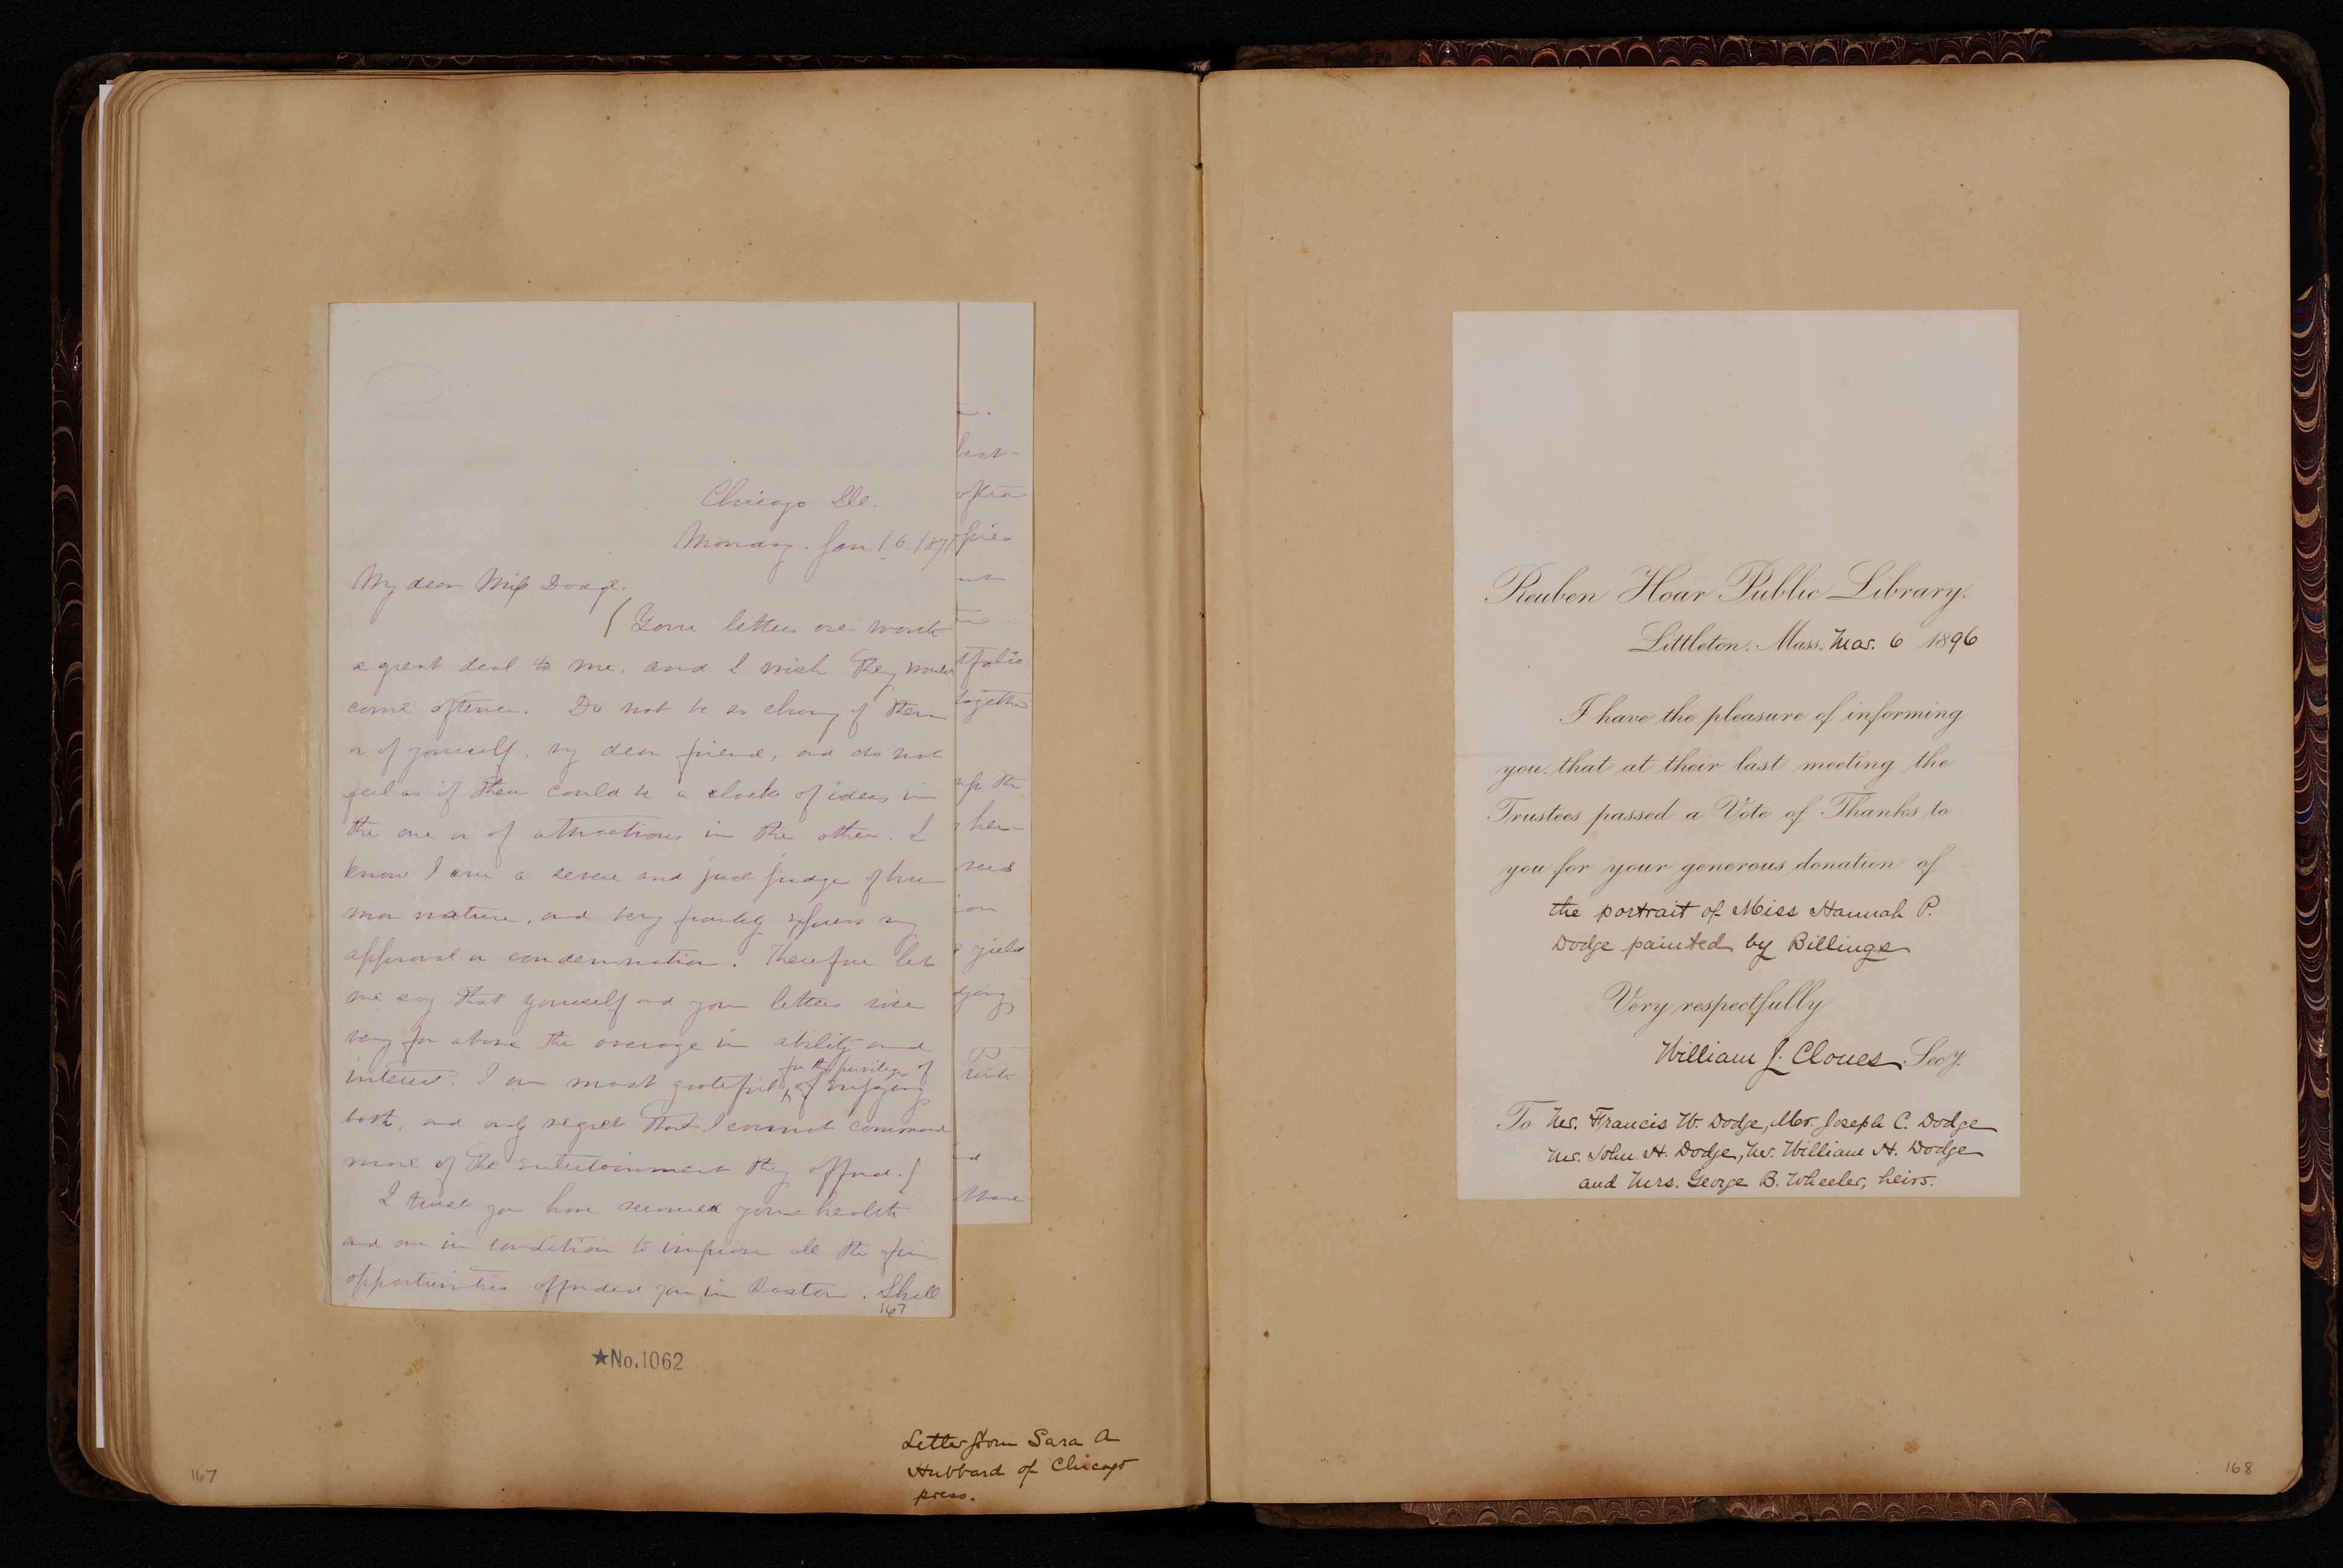 Chicago Ill.
Monday. Jan. 16. 187
My dear Miss Dodge.
( Your letters are worth
a great deal to me, and I wish they would
come oftener. Do not be so chary of them
or of yourself, my dear friend, and do not
feel as if there could be a of ideas in
the one or of attractions in the other. I
know I am a severe and just judge of hu
man nature, and very frankly express my
approval or condemnation. Therefore let
me say that yourself and your letters rise
very far above the average in ability and
interest. I am most grateful for the privilege of of enjoying
both, and only regret that I cannot command
more of the entertainment they afford. )
I trust you have secured your health
and are in condition to improve all the fine
opportunities afforded you in Boston. Shall
167
best
often
tfolio
together
up the
her
yield
★No.1062
Letter from Sara A
Hubbard of Chicago
press.
167
Reuben Hoar Public Library.
Littleton, Mass. Mar. 6 1896
I have the pleasure of informing
you, that at their last meeting the
Trustees passed a Vote of Thanks to
you for your generous donation of
the portrait of Miss Hannah P.
Dodge painted by Billings
Very respectfully
William J. Cloues Secy.
To Mr. Francis W. Dodge, Mr. Joseph C. Dodge
Mr. John H. Dodge, Mr. William H. Dodge
and Mrs. George B. Wheeler, heirs.
168